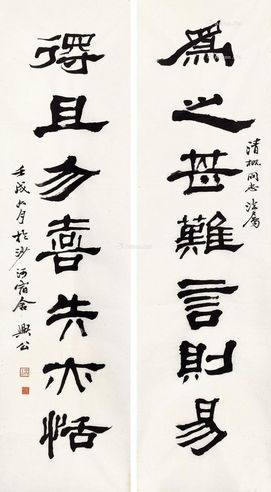 爲之甚難言則易
清同志法屬
得且勿喜失亦恬
壬戌月於沙河宿舍 興公